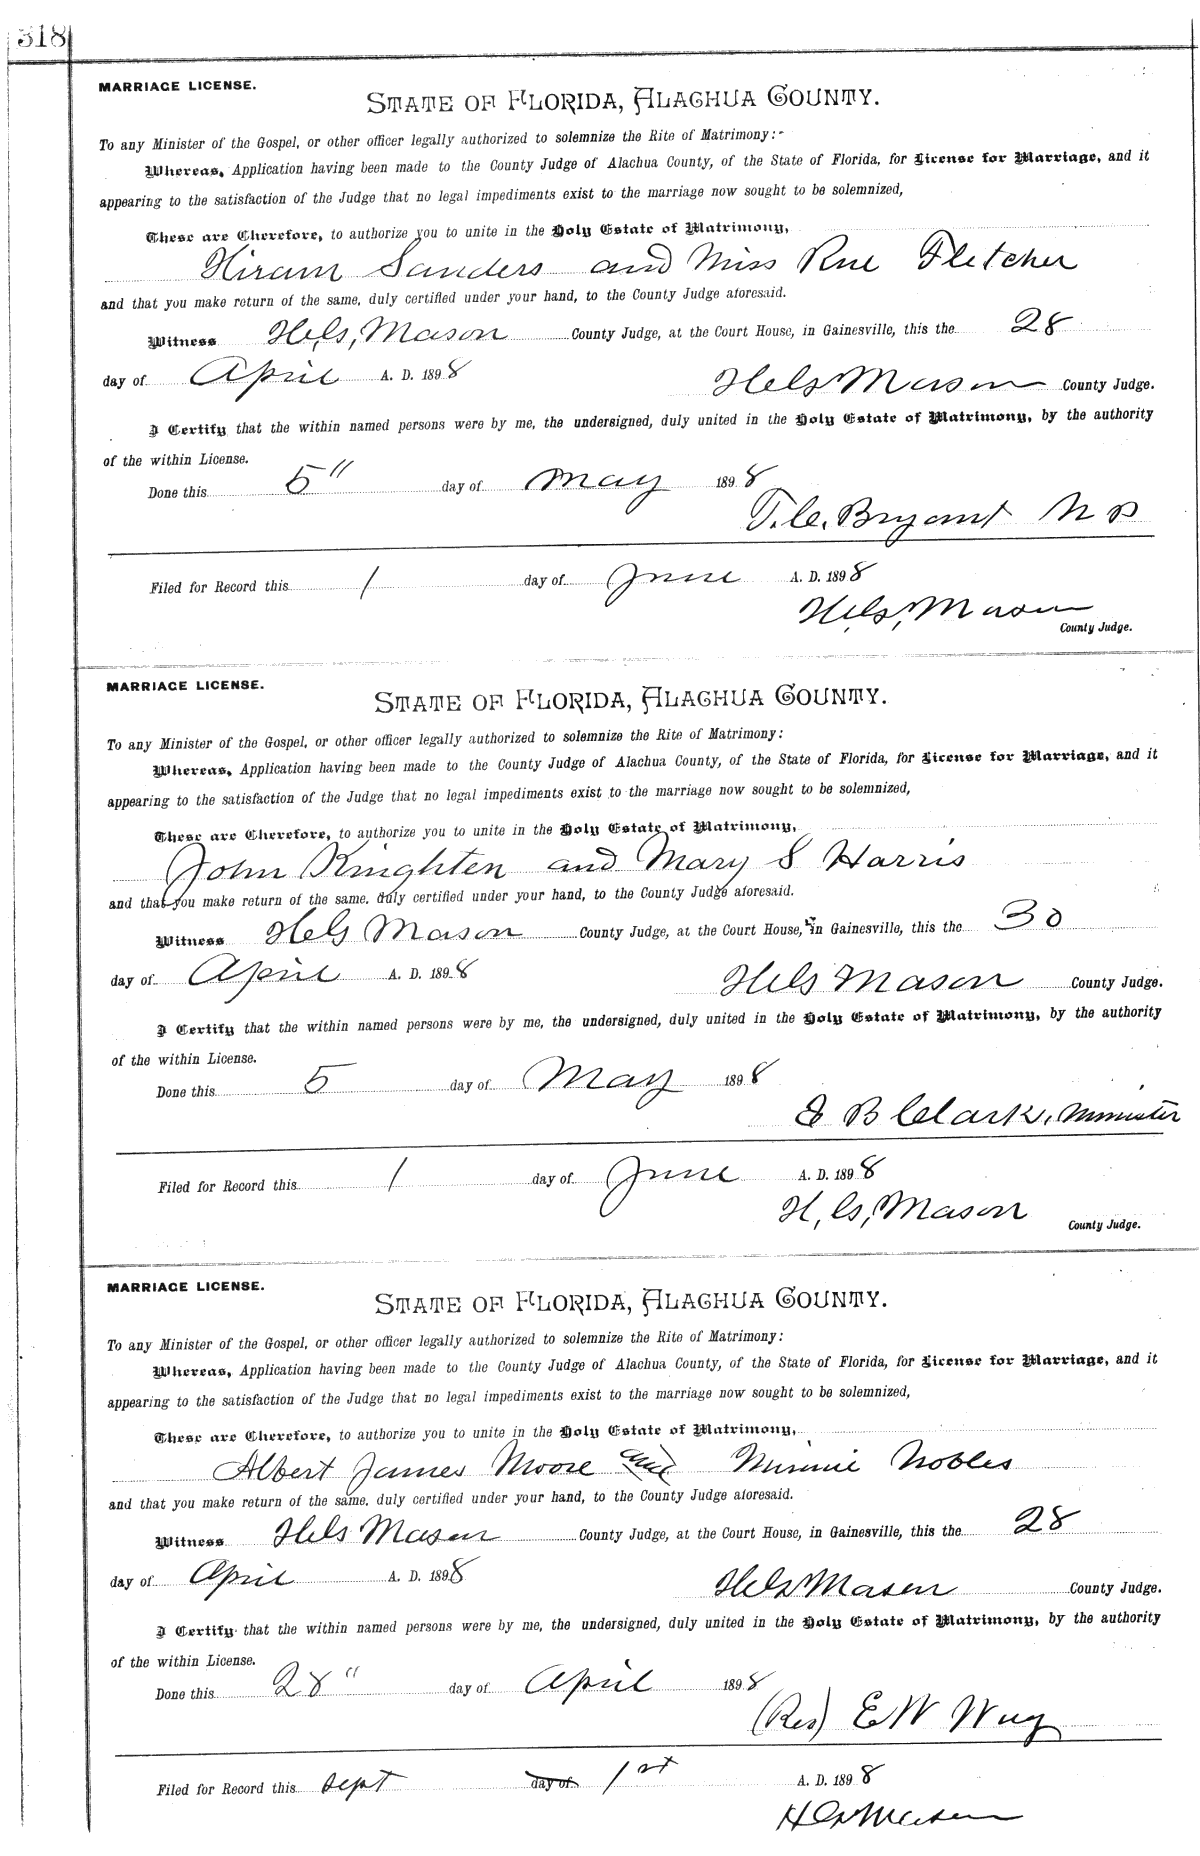 318
MARRIAGE LICENSE.
STATE OF FLORIDA, ALACHUA COUNTY.
To any Minister of the Gospel, or other officer legally authorized to solemnize the Rite of Matrimony:-
Whereas, Application having been made to the County Judge of Alachua County, of the State of Florida, for License for Marriage, and it
appearing to the satisfaction of the Judge that no legal impediments exist to the marriage now sought to be solemnized,
These are Therefore, to authorize you to unite in the Holy Estate of Matrimony,
Hiram Sanders and Miss Rue Fletcher
and that you make return of the same, duly certified under your hand, to the County Judge aforesaid.
Witness H.G. Mason County Judge, at the Court House, in Gainesville, this the 28
day of April A. D. 1898 H G Mason County Judge.
I Certify that the within named persons were by me, the undersigned, duly united in the Holy Estate of Matrimony, by the authority
of the within License.
Done this 5" day of May 1898
T. C. Bryant N P
Filed for Record this 1 day of June A. D. 1898
H.G. Mason
County Judge.
MARRIAGE LICENSE.
STATE OF FLORIDA, ALACHUA COUNTY.
To any Minister of the Gospel, or other officer legally authorized to solemnize the Rite of Matrimony:
Whereas, Application having been made to the County Judge of Alachua County, of the State of Florida, for License for Marriage, and it
appearing to the satisfaction of the Judge that no legal impediments exist to the marriage now sought to be solemnized,
These are Therefore, to authorize you to unite in the Holy Estate of Matrimony,
John Knighten and Mary S Harris
and that you make return of the same, duly certified under your hand, to the County Judge aforesaid.
Witness H G Mason County Judge, at the Court House, in Gainesville, this the 30
day of April A. D. 1898 H G Mason County Judge.
I Certify that the within named persons were by me, the undersigned, duly united in the Holy Estate of Matrimony, by the authority
of the within License.
Done this 5 day of May 1898
B Clark, Minister
Filed for Record this 1 day of June A. D. 1898
H, G, Mason
County Judge.
MARRIAGE LICENSE.
STATE OF FLORIDA, ALACHUA COUNTY.
To any Minister of the Gospel, or other officer legally authorized to solemnize the Rite of Matrimony:
Whereas, Application having been made to the County Judge of Alachua County, of the State of Florida, for License for Marriage, and it
appearing to the satisfaction of the Judge that no legal impediments exist to the marriage now sought to be solemnized,
These are Therefore, to authorize you to unite in the Holy Estate of Matrimony,
Albert James Moore and Minnie Nobles
and that you make return of the same, duly certified under your hand, to the County Judge aforesaid.
Witness H G Mason County Judge, at the Court House, in Gainesville, this the 28
day of April A. D. 1898 H G Mason County Judge.
I Certify that the within named persons were by me, the undersigned, duly united in the Holy Estate of Matrimony, by the authority
of the within License.
Done this 28" day of April 1898
E W
Filed for Record this Sept day of 1st A. D. 1898
H G Mason